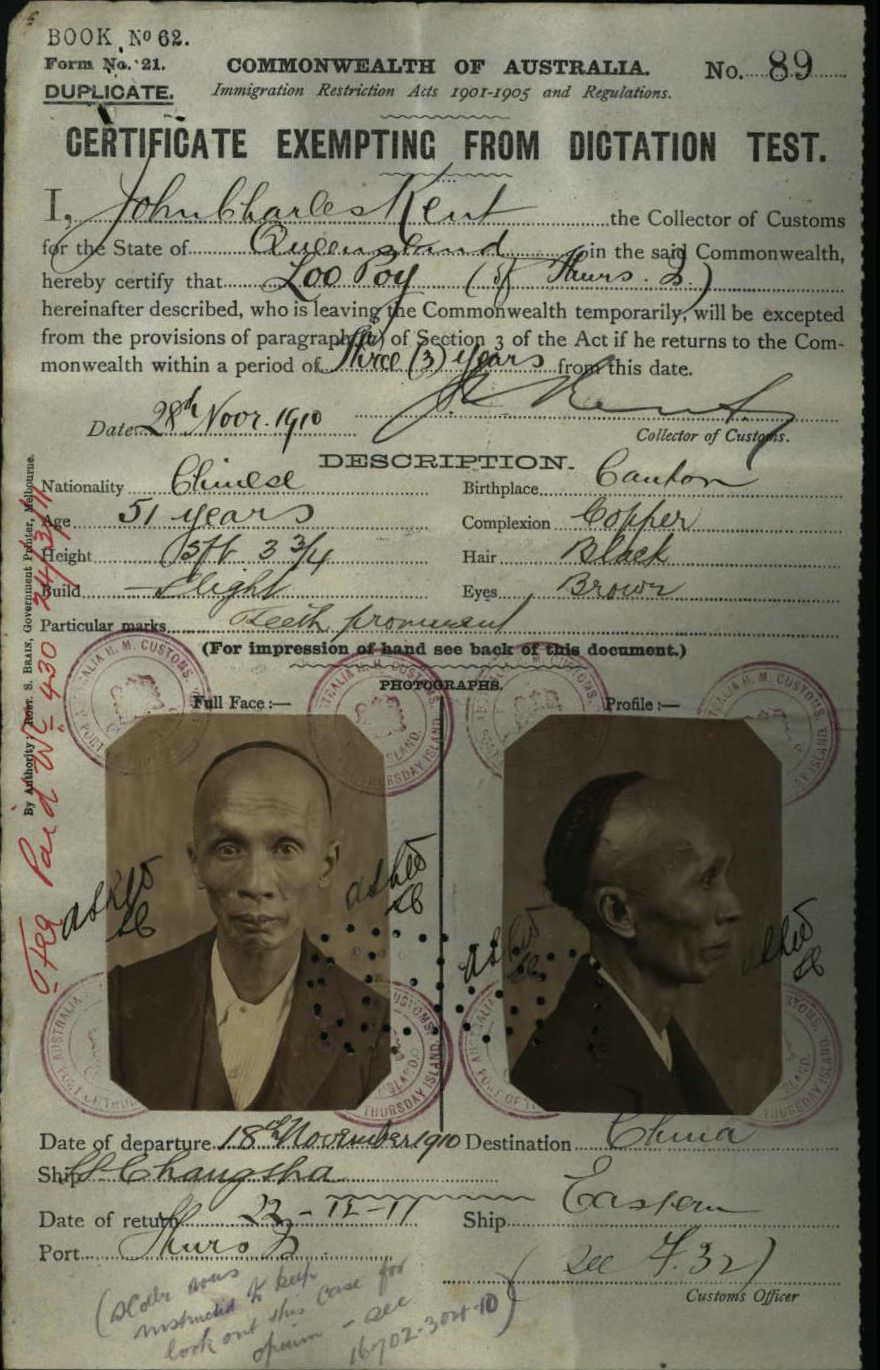 BOOK No 62.
Form No. 21.
DUPLICATE.
COMMONWEALTH OF AUSTRALIA.
Immigration Restriction Acts 1901-1905 and Regulations.
No. 89
CERTIFICATE EXEMPTING FROM DICTATION TEST.
I, John Charles Kent the Collector of Customs
for the State of Queensland in the said Commonwealth,
hereby certify that Loo Poy (of Thurs. Is.)
hereinafter described, who is leaving the Commonwealth temporarily, will be excepted
from the provisions of paragraph (a) of Section 3 of the Act if he returns to the Com-
monwealth within a period of Three (3) years from this date.
Date 28th Novr. 1910
Collector of Customs.
DESCRIPTION.
Nationality Chinese
Birthplace Canton
Age 51 years
Complexion Copper
Height 5ft 3 3/4
Hair Black
Build Slight
Eyes Brown
Particular marks Teeth prominent
(For impression of hand see back of this document.)
PHOTOGRAPHS.
Full Face :—
Profile :—
By Authority: S. BRAIN, Government Printer, Melbourne.
Paid 430 24/3/11
AUSTRALIA H. M. CUSTOMS
THURSDAY ISLAND
Date of departure 18th November 1910
Destination China
Ship Changsha
Date of return 22-12-11
Ship Eastern
Port Thurs Is
(See F. 32)
Customs Officer
instructed to keep
look out this case for
opium - see